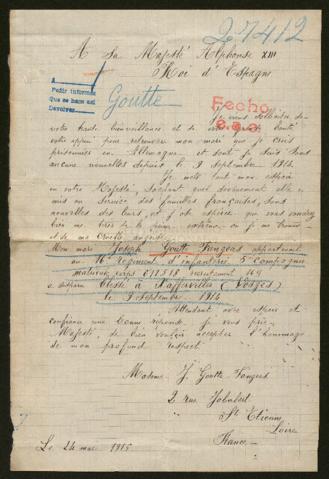 27412
A Sa Majesté Alphonse XIII
Roi d'Espagne
A
Pedir informes
Que se hace así
Devolver
Goutte
Fecho
Je viens solliciter de
votre haute bienveillance et de votre bonté
votre appui pour retrouver mon mari que je crois
prisonnier en Allemagne et dont je suis sans
aucune nouvelles depuis le 9 Septembre 1914.
Je mets tout mon espoir
en votre Majesté, sachant quel dévouement elle a
mis au Service des familles françaises, sans
nouvelles des leurs, et j'ose espérer que vous voudrez
bien me
et de ma cruelle
Mon mari Joseph Goutte Fangeas appartenait
au 16e régiment d'infanterie 5e Compagnie
matricule corps 011518 recrutement 164
a disparu Blessé à (Vosges)
le 9 Septembre 1914
Attendant avec espoir et
confiance une bonne réponse, je vous prie,
Majesté, de bien vouloir accepter l'hommage
de mon profond respect
Madame J. Goutte Fangeas
2 rue
St Etienne
Loire
France
Le 24 mai 1915